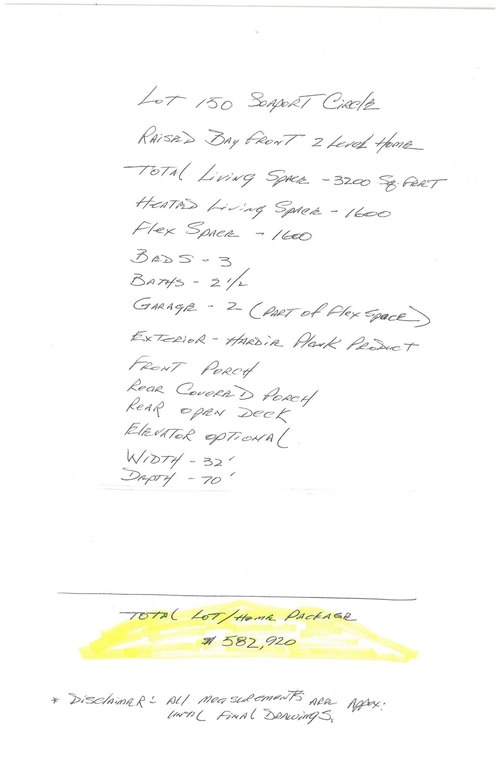 Lot 150 Seaport Circle
Raised Bay Front 2 Level Home
Total Living Space - 3200 Sq. Feet
Heated Living Space - 1600
Flex Space - 1600
Beds - 3
Baths - 2 1/2
Garage - 2 (Part of Flex Space)
Exterior - Hardie Plank Product
Front Porch
Rear Covered Porch
Rear Open Deck
Elevator Optional
Width - 32'
Depth - 70'
Total Lot/Home Package
$ 582,920
* Disclaimer: All measurements are Appox.
until Final Drawings.